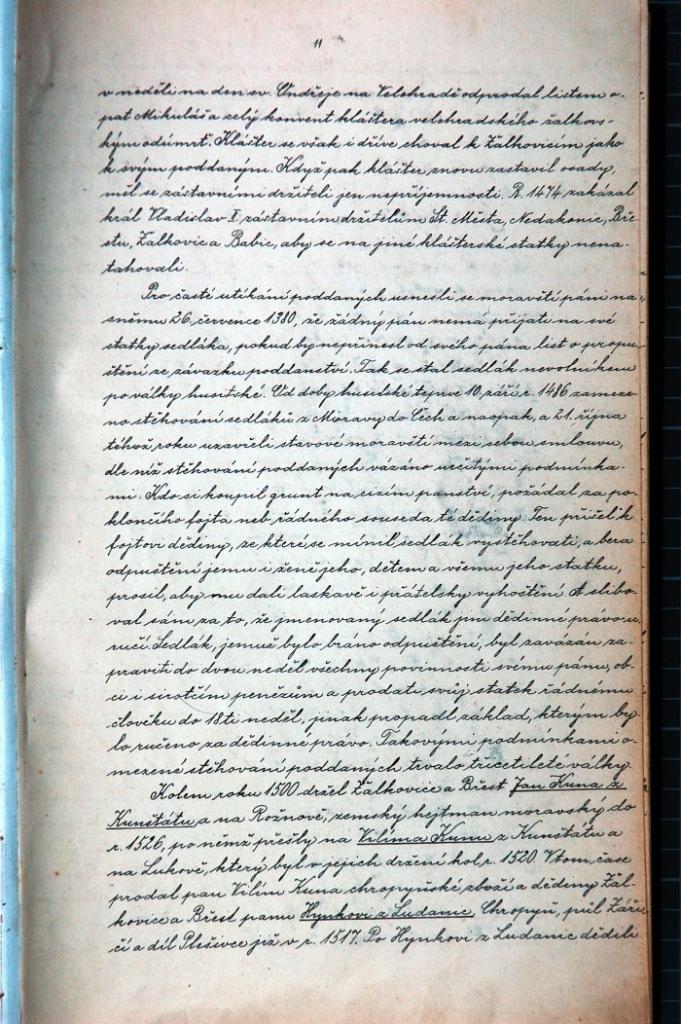 11
v neděli na den sv. Ondřeje na Velehradě odprodal listem o-
pat Mikuláš a celý konvent kláštera velehradského žalkovs-
kým odúmrť. Klášter se však i dříve choval k Žalkovicím jako
k svým poddaným. Když pak klášter znovu zastavil osady,
měl se zástavními držiteli jen nepříjemnosti. R. 1474 zakázal
král Vladislav II. zástavním držitelům St. Města, Nedakonic, Bře-
stu, Žalkovic a Babic, aby se na jiné klášterské statky nena-
tahovali.
Pro časté utíkání poddaných usnesli se moravští páni na
sněmu 26. července 1380, že žádný pán nemá přijati na své
statky sedláka, pokud by nepřinesl od svého pána list o propu-
štění ze závazku poddanství. Tak se stal sedlák nevolníkem
po války husitské. Od doby husitské teprve 10. září r. 1486 zameze-
no stěhování sedláků z Moravy do Čech a naopak, a 21. října
téhož roku uzavřeli stavové moravští mezi sebou smlouvu,
dle níž stěhování poddaných vázáno určitými podmínka-
mi. Kdo si koupil grunt na cizím panství, požádal za po-
klončího fojta neb řádného souseda té dědiny. Ten přišel k
fojtovi dědiny, ze které se mínil sedlák vystěhovati, a bera
odpuštění jemu i ženě jeho, dětem a všemu jeho statku,
prosil, aby mu dali laskavě i přátelsky vyhoštění. A slibo-
val sám za to, že jmenovaný sedlák jim dědinné právo za-
ručí. Sedlák, jemuž bylo bráno odpuštění, byl zavázán za-
praviti do dvou neděl všechny povinnosti svému pánu, ob-
ci i sirotčím penězům a prodati svůj statek řádnému
člověku do 18ti neděl, jinak propadl základ, kterým by-
lo ručeno za dědinné právo. Takovými podmínkami o-
mezené stěhování poddaných trvalo do třicetileté války.
Kolem roku 1500 držel Žalkovice a Břest Jan Kuna z
Kunštátu a na Rožnově, zemský hejtman moravský do
r. 1526, po němž přešly na Vilíma Kunu z Kunštátu a
na Lukově, který byl v jejich držení kol. r. 1520. V tom čase
prodal pan Vilím Kuna chropyňské zboží a dědiny Žal-
kovice a Břest panu Hynkovi z Ludanic, Chropyň, půl Záři-
čí a díl Plešivce již v r. 1517. Po Hynkovi z Ludanic dědili